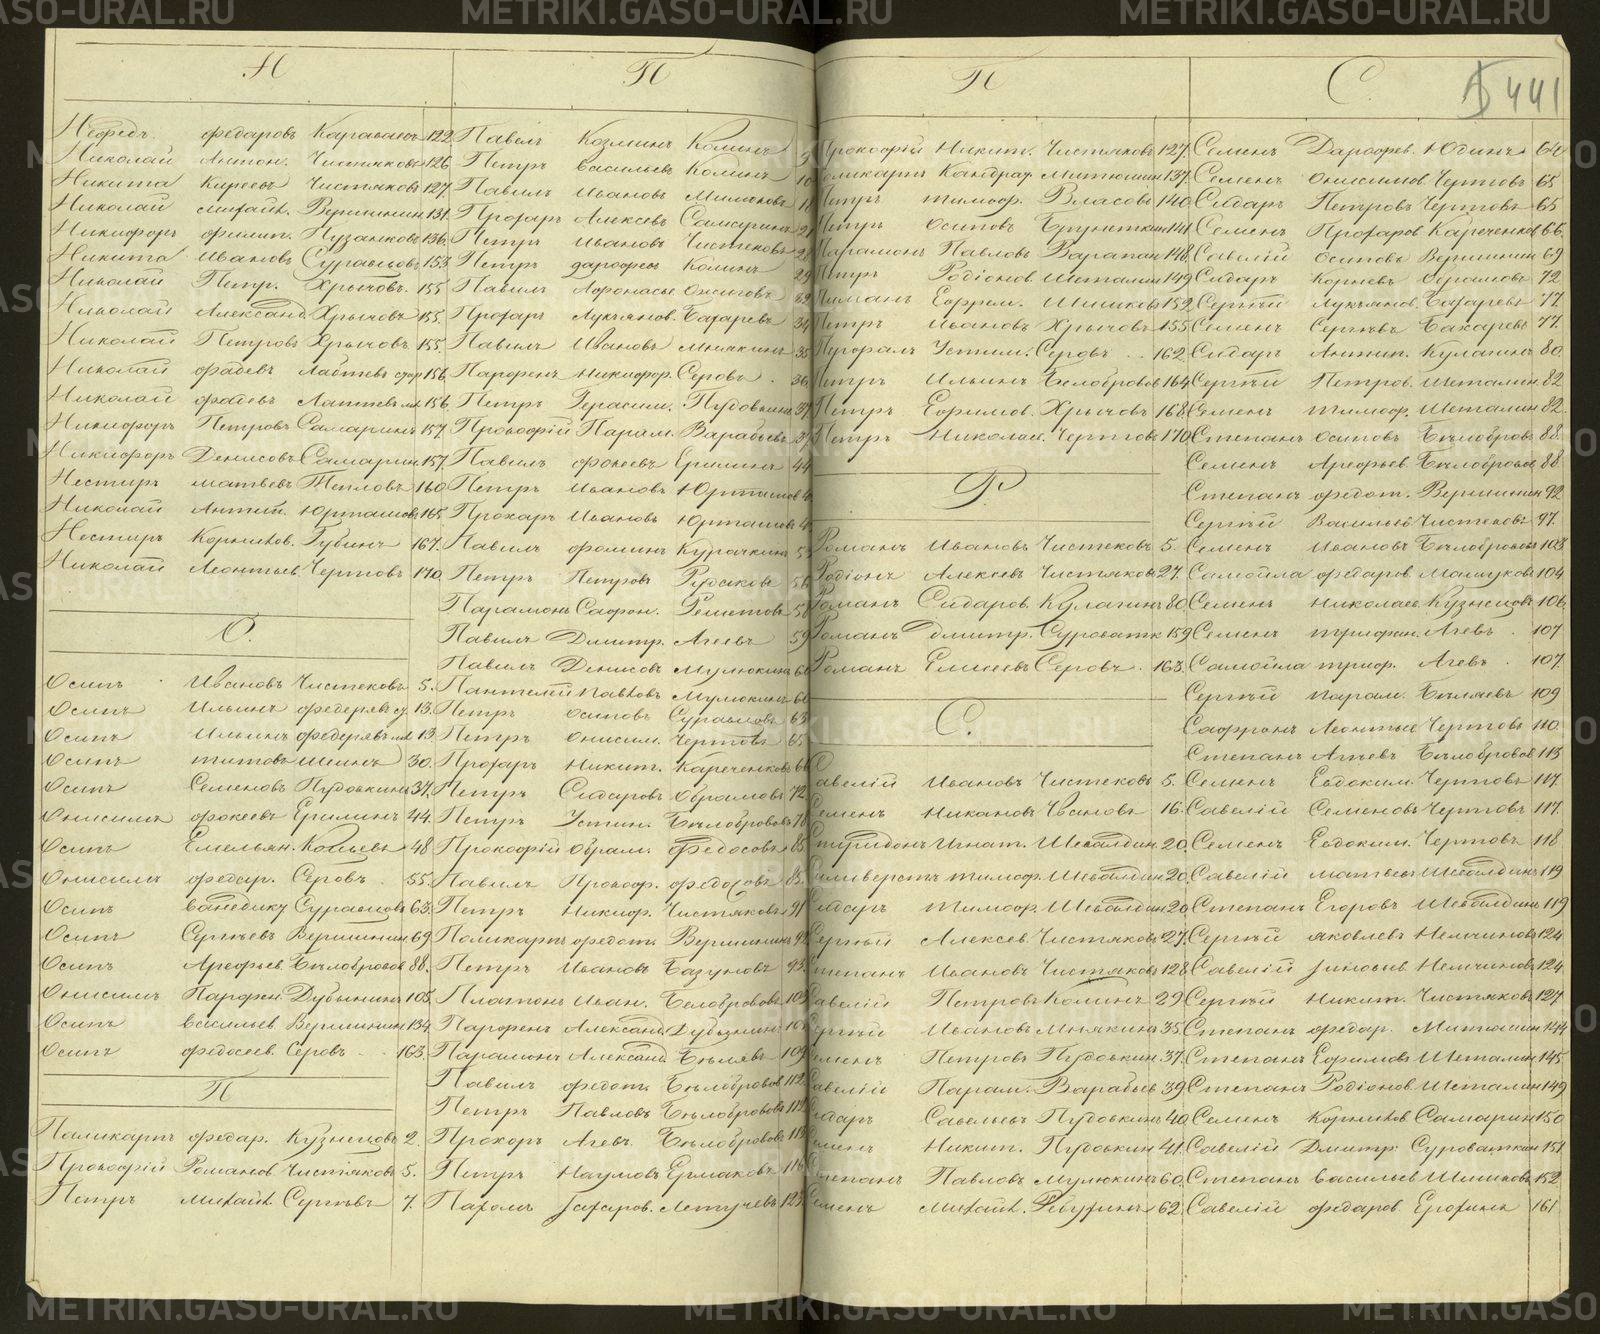 Н
Нефедъ федаровъ Караваевъ 122
Николай Антон. Чистяковъ 126
Никита Киреевъ Чистяковъ 127
Николай Михайл. Вершининъ 131
Никифоръ филип. Пузанковъ 136
Никита Ивановъ Суравцовъ 153
Николай Петр. Хрычовъ 155
Николай Александ. Хрычовъ 155
Николай Петровъ Хрычовъ 155
Николай фадеевъ Лаптевъ 156
Николай фадеевъ Лаптевъ мл 156
Никифоръ Петровъ Самаринъ 157
Никифоръ Денисовъ Самарин 157
Нестиръ Матвеевъ Тепловъ 160
Николай Антип. Юрташовъ 165
Нестиръ Корнилов. Губинъ 167
Николай Леонтьев. Чертовъ 170
О.
Осипъ Ивановъ Чистековъ 5.
Осипъ Ильинъ федеряевъ 13.
Осипъ Ильинъ федеряевъ мл 13
Осипъ титовъ Шеинъ 30.
Осипъ Семеновъ Пудовкинъ 37.
Онисимъ фокеевъ Еришинъ 44.
Осипъ Емельян. 48
Онисимъ федар. Серовъ 55.
Осипъ Суравцовъ 63.
Осипъ Сергѣевъ Вершинин 69
Осипъ Арефьев. Бѣлобровов 88.
Онисимъ Парфен. Дубынинъ 105.
Осипъ Васильев. Вершинин 134
Осипъ федосеев. Серовъ 163.
П
Паликарпъ федар. Кузнецовъ 2
Прокофій Романов. Чистяковъ 5.
Петръ Михайл. Сергѣевъ 7.
П
Павелъ Козминъ Коминъ
Петръ Васильевъ Коминъ 10
Павилъ Ивановъ
Прохаръ Алексевъ Самсуринъ
Петръ Ивановъ Чистековъ
Петръ дарофеев Коминъ 29
Павилъ Афонасье.
Прохаръ Лукъянов. Бахаревъ 34
Павилъ Ивановъ Мнякинъ 35
Парфенъ Никифор. Серовъ 36
Петръ Герасим. Пудовкинъ 37
Прокофій Парам. Варабьевъ
Павилъ фокеевъ Еришинъ 44
Петръ Ивановъ Юрташов
Прохаръ Ивановъ Юрташовъ
Павилъ фоминъ Курочкинъ
Петръ Петровъ Рудаковъ 56
Парамонъ Сафон. Решетовъ 58
Павилъ Дмитр. Агеевъ 59
Павилъ Денисовъ Мулюкинъ 60
Пантелей Павловъ Мулюкинъ 60
Петръ Осиповъ Суравцовъ 63
Петръ Онисим. Чертовъ 65
Прохаръ Никит. Кареченковъ 66
Петръ Сидаровъ Абрамовъ 72
Петръ Устин. Бѣлобрововъ
Прокофій Абрам. Федосовъ 85
Павилъ Прокоф. федосовъ 85.
Петръ Никиф. Чистяковъ 91
Поликарпъ федот. Вершининъ 92
Петръ Ивановъ Базуновъ 93.
Платонъ Иван. Белобрововъ 103
Парфенъ Александ. Дубынинъ 105
Парамонъ Александ. Бѣляевъ 109
Павилъ федот. Бѣлобровов 112
Петръ Павловъ Бѣлобрововъ 112
Прохоръ Агѣев. Бѣлобрововъ 113
Петръ Наумовъ Ермаковъ 116
Пахомъ Захаров. Летучевъ 123
П
Прокофій Никит. Чистяковъ 127.
Поликарпъ Кандрат. Митюшин 137.
Петръ тимоф. Власовъ 140
Петръ Осиповъ 141
Парамонъ Павловъ Варапан 148
Петръ Родіонов Шеталин 149
Пиманъ Ефрем. Шишковъ 152
Петръ Ивановъ Хрычовъ 155
Перфилъ Устим. Серовъ 162
Петръ Ильинъ Белобровов 164
Петръ Ефимов. Хрычовъ 168
Петръ Николаев. Чертовъ 170
Р.
Романъ Ивановъ Чистековъ 5.
Родіонъ Алексеевъ Чистяковъ 27.
Романъ Сидаров. Кулагинъ 80
Романъ Дмитр. Суроватк 159
Романъ Елисеевъ Серовъ 163.
С.
Савелій Ивановъ Чистековъ 5.
Семенъ Никановъ Ивановъ 16.
Спиридонъ Игнат. Шевалдин 20.
Селиверстъ тимоф. Шевалдин 20.
Сидаръ Тимоф. Шевалдин 20
Сергѣй Алексеев. Чистяковъ 27.
Степанъ Ивановъ Чистяковъ 128
Савелій Петровъ Коминъ 29
Сергѣй Ивановъ Мнякинъ 35
Семенъ Петровъ Пудовкин 37.
Савелій Парам. Варабьев 39
Сидаръ Савельевъ Пудовкин 40
Семенъ Никит. Пудовкин 41.
Степанъ Павловъ Мулюкинъ 60.
Семенъ Михайл. Ревузинъ 62
С. 441
Семенъ Дарофеев. Юдинъ 64
Семенъ Онисимов Чертовъ 65
Сидаръ Петровъ Чертовъ 65
Семенъ Прохаров Кареченков 66.
Савелій Осиповъ Вершинин 69
Сидаръ Корнеевъ Абрамовъ 72
Сергѣй Лукъянов. Бахаревъ 77
Семенъ Сергѣевъ Бахаревъ 77.
Сидаръ Антип. Кулагинъ 80.
Сергѣй Петров. Шеталин 82
Семенъ тимоф. Шеталин 82.
Степанъ Осиповъ Бѣлобровъ 88.
Семенъ Арефьев. Бѣлобровов 88.
Степанъ федот. Вершинин 92
Сергѣй Васильев Чистековъ 97.
Семенъ Ивановъ Бѣлобровов 103
Самойла федаров. Машуковъ 104
Семенъ Николаев Кузнецовъ 106.
Семенъ трифан. Агеевъ 107
Самойла триф. Агеевъ 107.
Сергѣй парам. Бѣляевъ 109
Сафронъ Леонтьев Чертовъ 110.
Степанъ Агѣевъ Бѣлобровов 113
Семенъ Евдоким. Чертовъ 117.
Савелій Семеновъ Чертовъ 117.
Семенъ Евдоким. Чертовъ 118
Савелій Матвеевъ Шевалдинъ 119
Степанъ Егоровъ Шевалдинъ 119
Сергѣй яковлевъ Немчиновъ 124
Савелій Зиновьев Немчиновъ 124.
Сергѣй Никит. Чистяковъ 127
Степанъ федар. Митюшин 144
Степанъ Ефимовъ Шеталин 145
Степанъ Родіонов. Шеталин 149
Семенъ Корнилов Самарин 150
Савелій Дмитр. Суроваткин 151
Степанъ Васильев Шишковъ 152
Савелій федаров. Ерофиев 161
METRIKI.GASO-URAL.RU